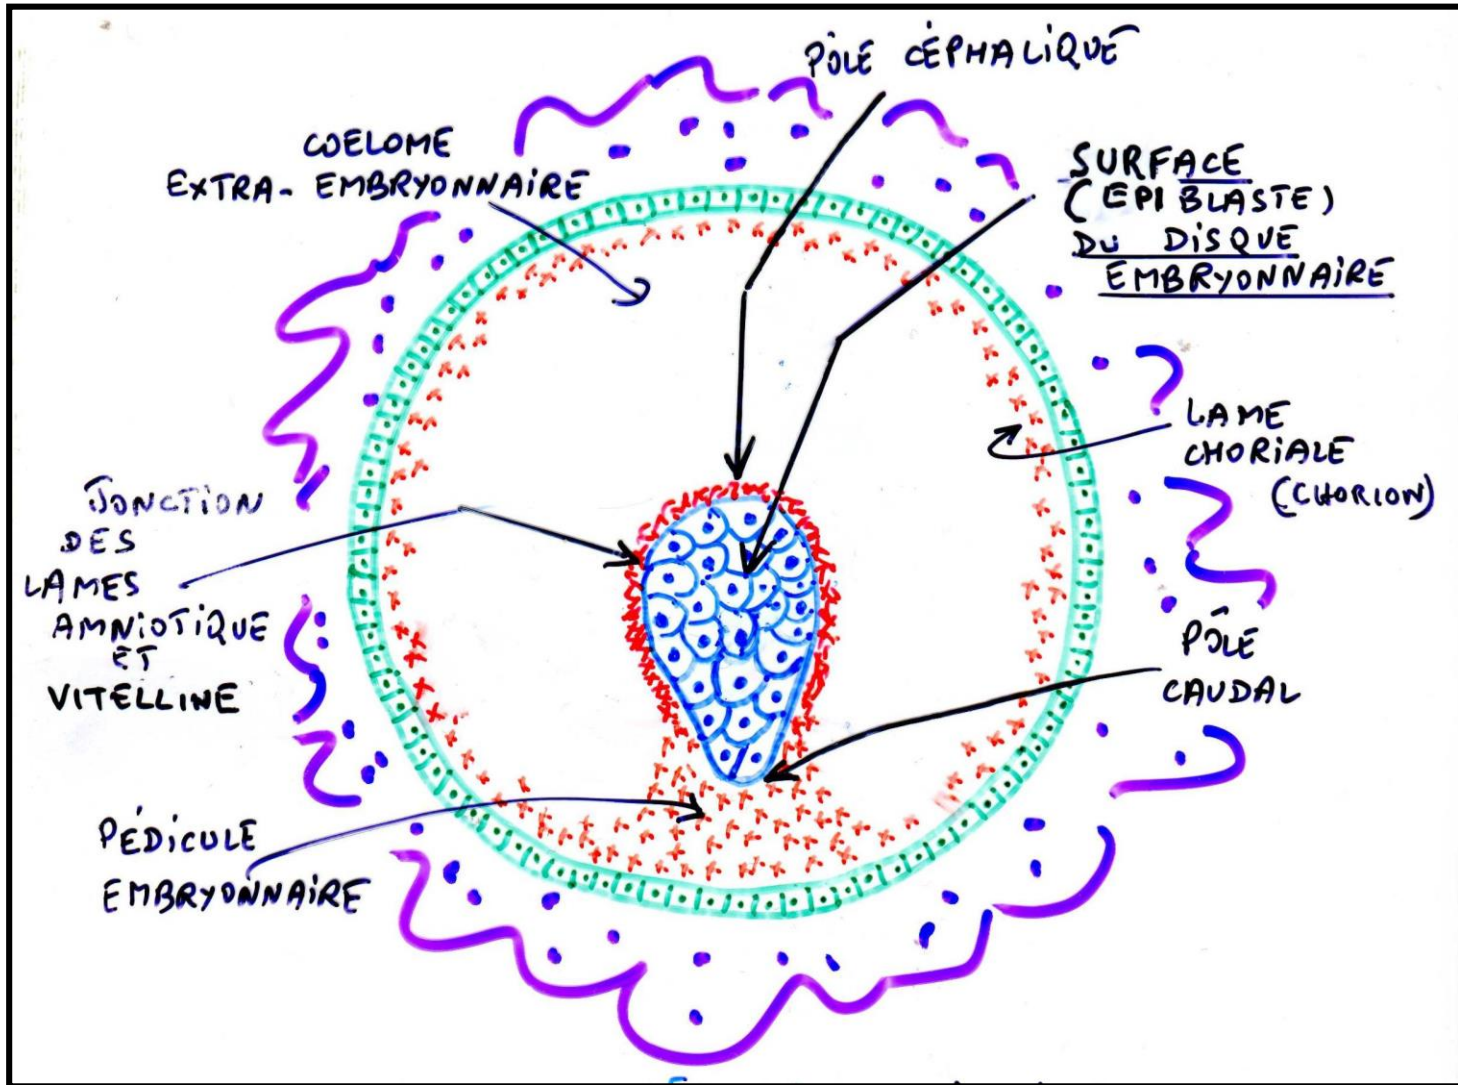 PÔLE CÉPHALIQUE
COELOME
EXTRA-EMBRYONNAIRE
SURFACE
(EPIBLASTE)
DU DISQUE
EMBRYONNAIRE
LAME
CHORIALE
(CHORION)
JONCTION
DES
LAMES
AMNIOTIQUE
ET
VITELLINE
PÔLE
CAUDAL
PÉDICULE
EMBRYONNAIRE